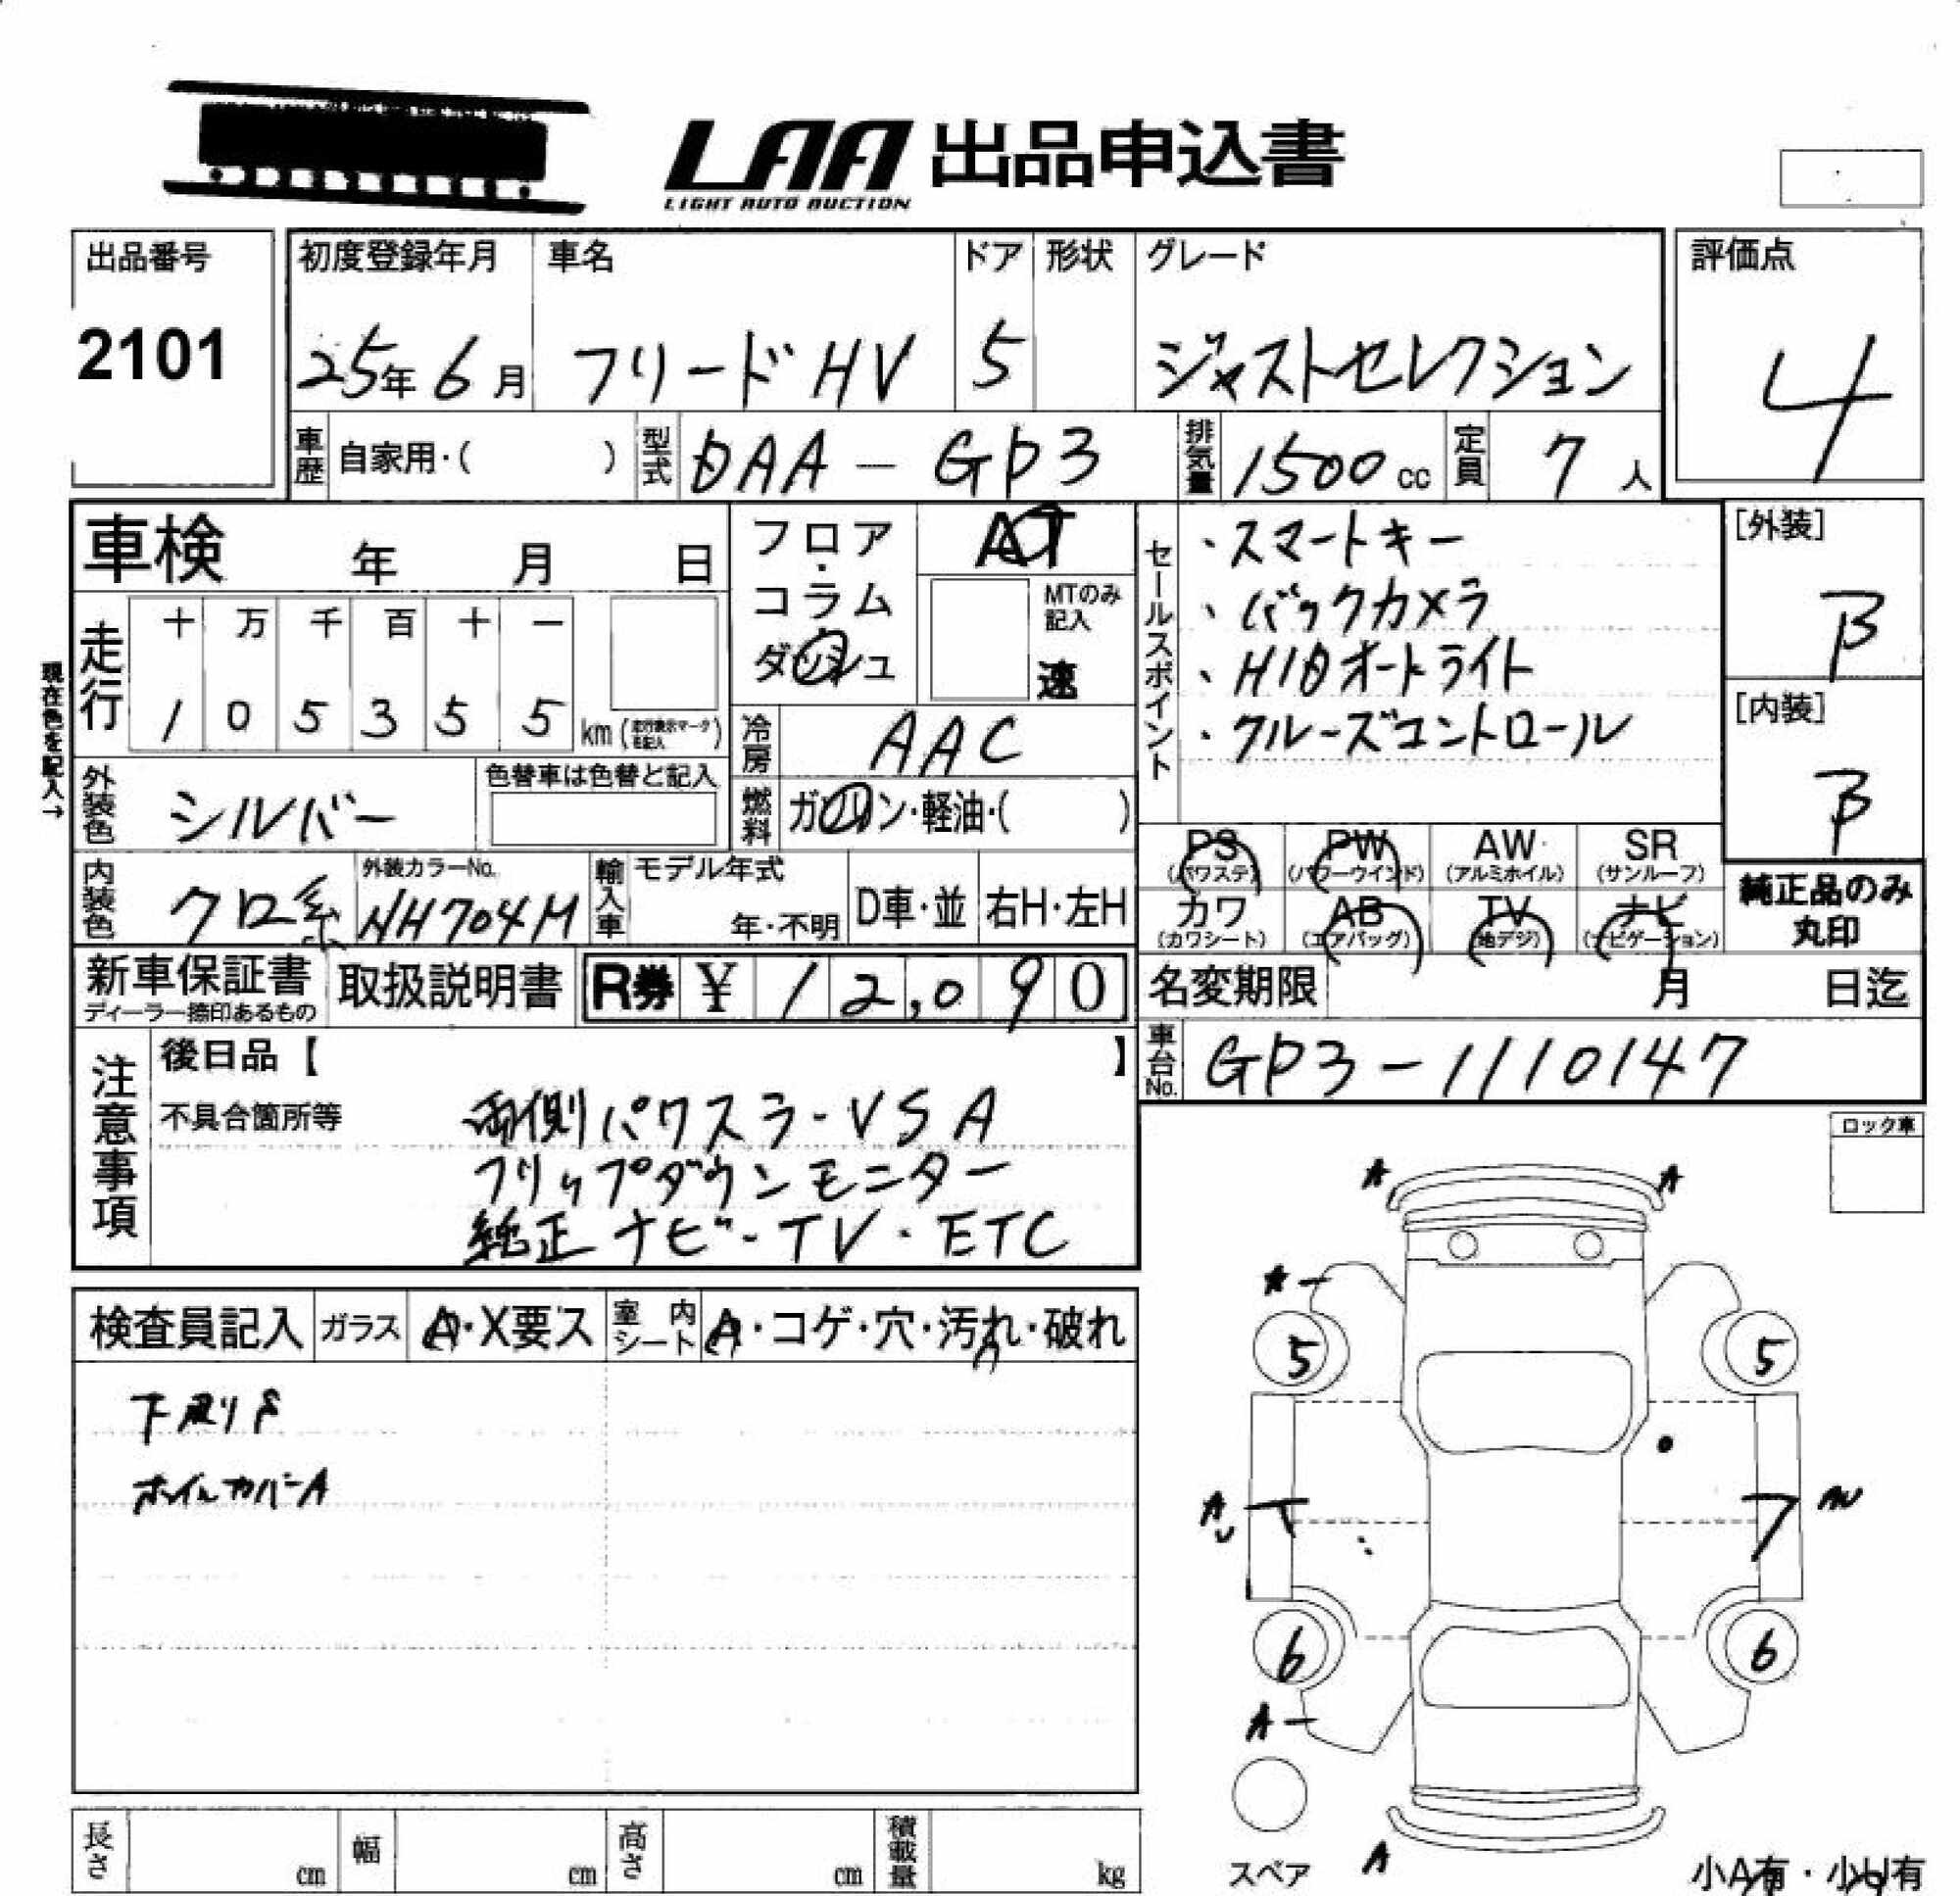 LAA 出品申込書
LIGHT AUTO AUCTION
出品番号
2101
初度登録年月 車名 ドア 形状 グレード
25年6月 フリードHV 5 ジャストセレクション
評価点
4
車歴 自家用・( ) 型式 DAA-GP3 排気量 1500cc 定員 7人
車検 年 月 日
フロア・コラム・ダッシュ
AT
MTのみ記入
速
走行 十 万 千 百 十 一
1 0 5 3 5 5 km
現在色を記入→
冷房 AAC
外装色 シルバー
色替車は色替と記入
燃料 ガソリン・軽油・( )
内装色 クロ系
外装カラーNo.
NH704M
輸入車 モデル年式
年・不明 D車・並 右H・左H
セールスポイント
・スマートキー
、バックカメラ
、HIDオートライト
・クルーズコントロール
[外装]
B
[内装]
B
PS PW AW SR
(パワステ) (パワーウインド) (アルミホイル) (サンルーフ)
カワ AB TV ナビ
(カワシート) (エアバッグ) (地デジ) (ナビゲーション)
純正品のみ
丸印
新車保証書
ディーラー捺印あるもの
取扱説明書
R券 ¥ 12,090
名変期限 月 日迄
車台No. GP3-1110147
注意事項
後日品【 】
不具合箇所等
両側パワスラ・VSA
フリップダウンモニター
純正ナビ・TV・ETC
検査員記入 ガラス A・X要ス 室内シート A・コゲ・穴・汚れ・破れ
ホイルカバーA
ロック車
A A
A
5 5
A
6 6
A
スペア
A
小A有・小U有
長さ cm 幅 cm 高さ cm 積載量 kg